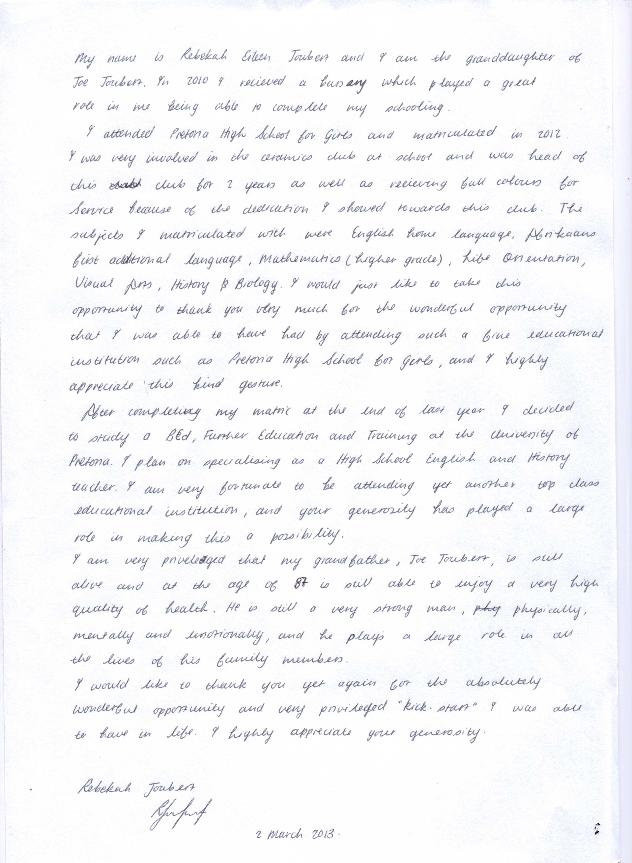 My name is Rebekah Eileen Joubert and I am the granddaughter of
Joe Joubert. In 2010 I recieved a bursary which played a great
role in me being able to complete my schooling.
I attended Pretoria High School for Girls and matriculated in 2012.
I was very involved in the ceramics club at school and was head of
this club for 2 years as well as recieving full colours for
Service because of the dedication I showed towards this club. The
subjects I matriculated with were English home language, Afrikaans
first additional language, Mathematics (higher grade), Life Orientation,
Visual Arts, History & Biology. I would just like to take this
opportunity to thank you very much for the wonderful opportunity
that I was able to have had by attending such a fine educational
institution such as Pretoria High School for Girls, and I highly
appreciate this kind gesture.
After completing my matric at the end of last year I decided
to study a BEd, Further Education and Training at the University of
Pretoria. I plan on specialising as a High School English and History
teacher. I am very fortunate to be attending yet another top class
educational institution, and your generosity has played a large
role in making this a possibility.
I am very priveledged that my grandfather, Joe Joubert, is still
alive and at the age of 87 is still able to enjoy a very high
quality of health. He is still a very strong man, phy physically,
mentally and emotionally, and he plays a large role in all
the lives of his family members.
I would like to thank you yet again for the absolutely
wonderful opportunity and very privileged "kick-start" I was able
to have in life. I highly appreciate your generosity.
Rebekah Joubert
2 March 2013.